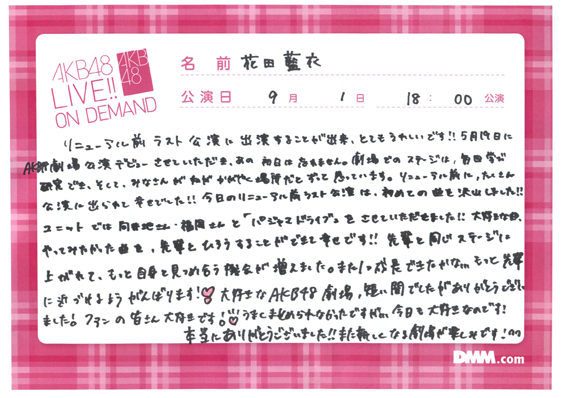 AKB48
LIVE!!
ON DEMAND
AKB
48
名 前 花田 藍衣
公演日 9 月 1 日 18 : 00 公演
リニューアル前 ラスト 公演に 出演することが出来、とてもうれしいです!! 5月19日に
AKB劇場公演デビューさせていただき、あの 初日は忘れません。劇場でのステージは、毎回学び
そして、みなさんが 場所だとずっと思っています。リニューアル前に、たくさん
公演に出られて幸せでした!! 今日のリニューアル前ラスト公演は、初めての曲を沢山しました!!
ユニットでは 向井地さん・福岡さんと「パジャマドライブ」をさせていただきました!! 大好きな曲、
やってみたかった曲を、先輩とひろうすることができて幸せです!! 先輩と同じステージに
上がれて、もっと自身と見つめ合う機会が増えました。また1つ成長できたかな もっと先輩
に近づけるようがんばります! 大好きなAKB48劇場、短い間でしたがありがとうござい
ました! ファンの皆さん大好きです! うまくまとめられなかったですが 今日も大好きなのです!
本当にありがとうございました!! また新しくなる劇場が楽しみです!
DMM.com